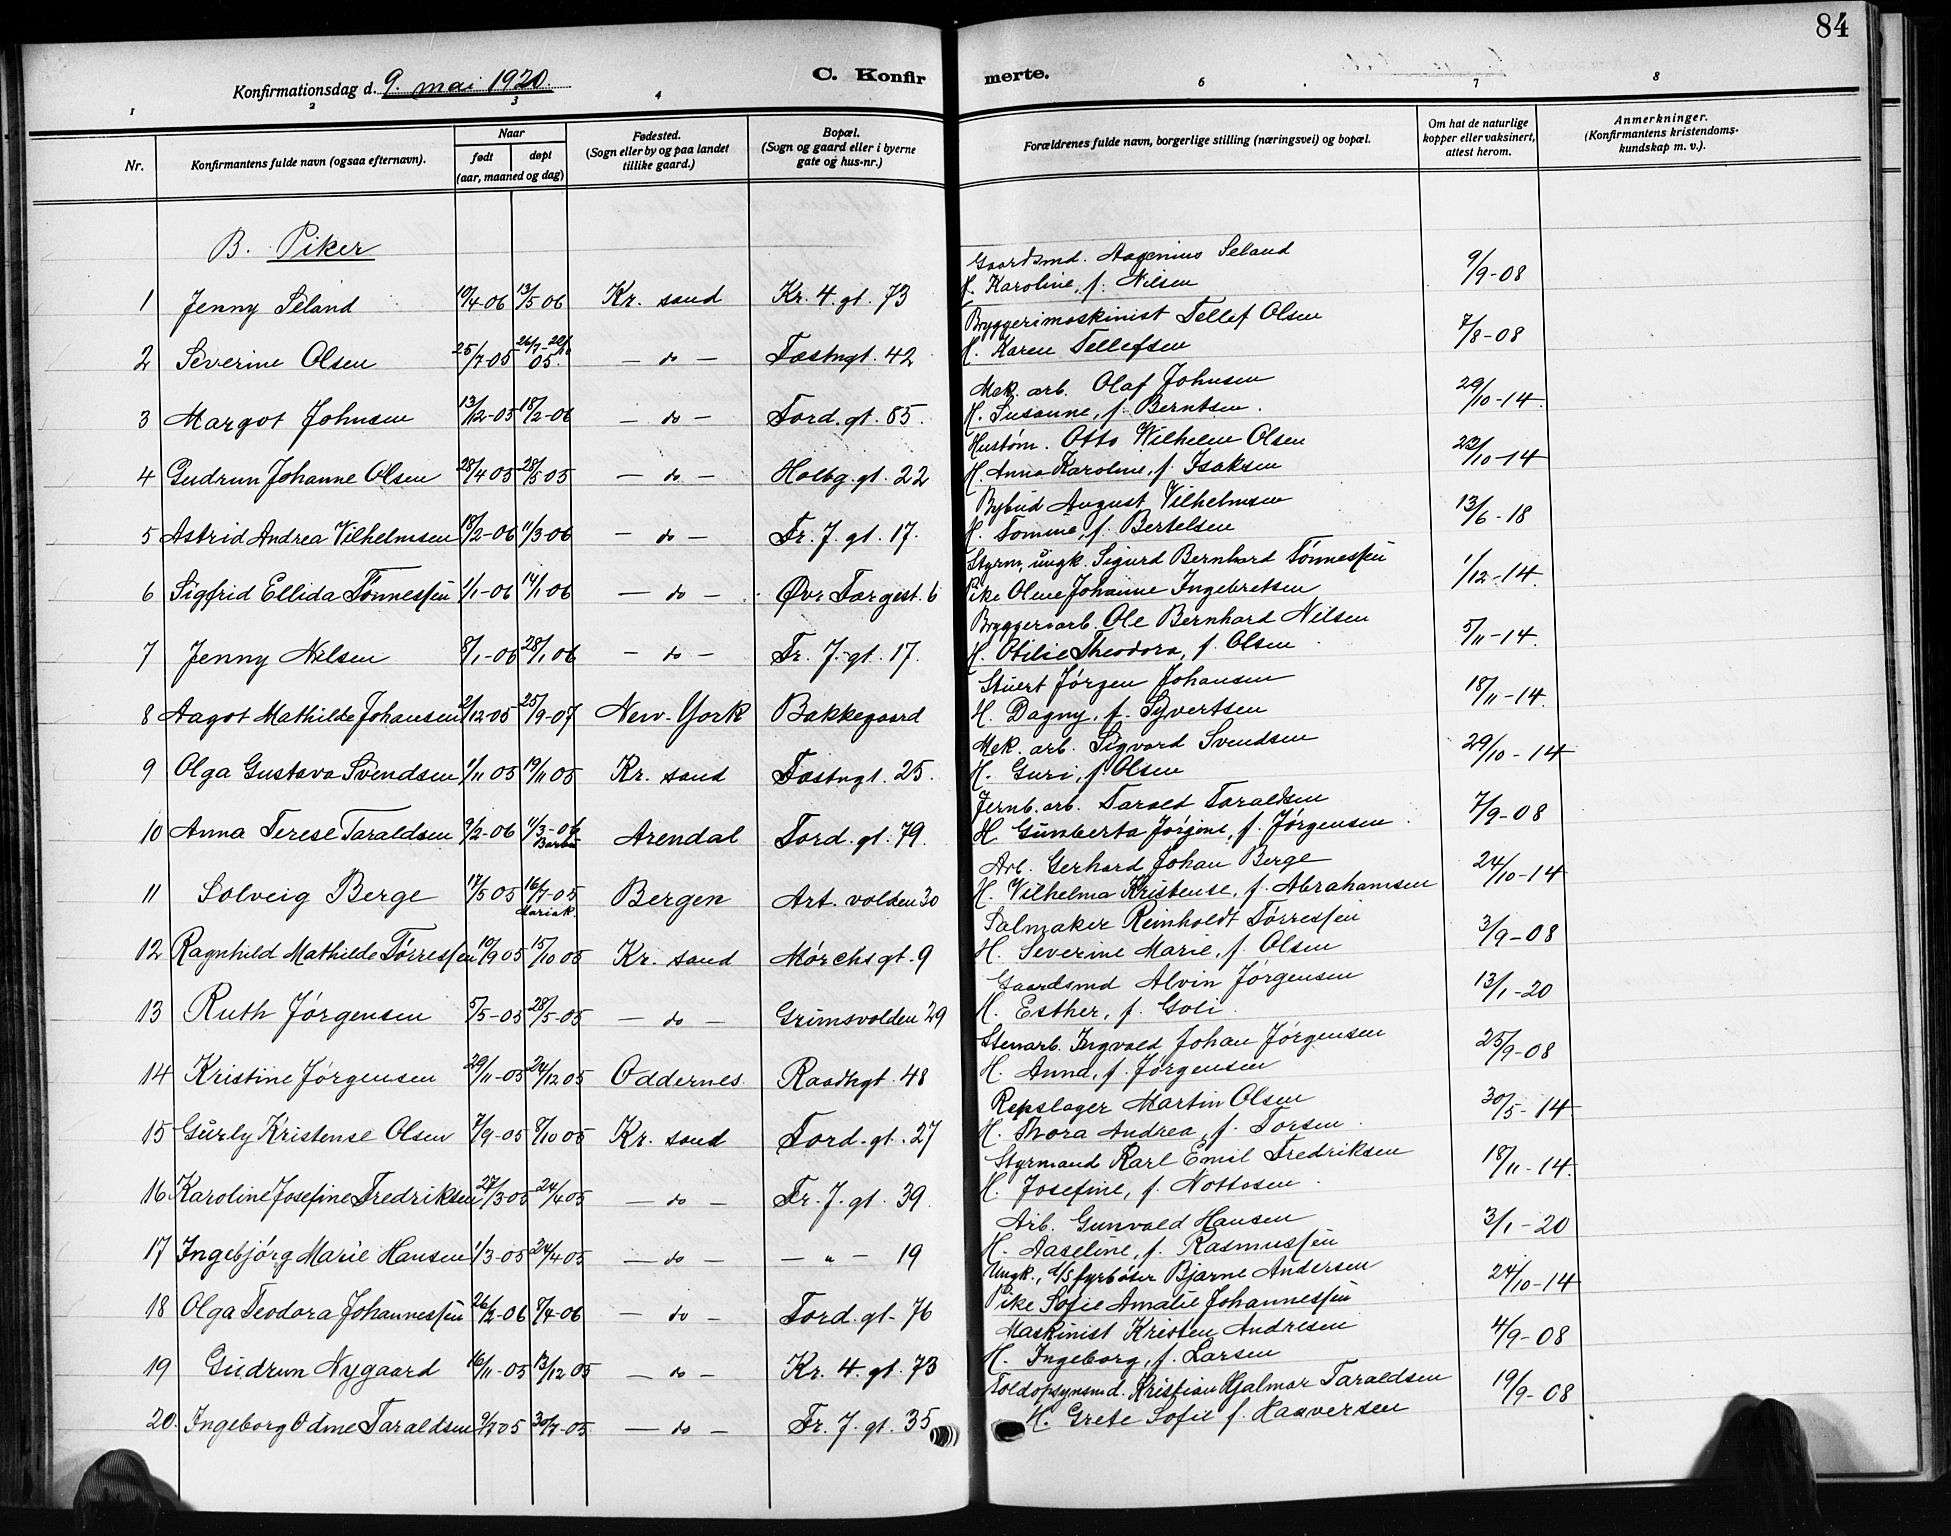 84
Konfirmationsdag d. 9. mai 1920.
C. Konfir merte.
1 2 3 4 6 7 8
Nr.
Konfirmantens fulde navn (ogsaa efternavn).
Naar
født
døpt
(aar, maaned og dag)
Fødested.
(Sogn eller by og paa landet
tillike gaard.)
Bopæl.
(Sogn og gaard eller i byerne
gate og hus-nr.)
Forældrenes fulde navn, borgerlige stilling (næringsvei) og bopæl.
Om hat de naturlige
kopper eller vaksinert,
attest herom.
Anmerkninger.
(Konfirmantens kristendoms-
kundskap m. v.).
B. Piker
Gaardsmd. Aagenius Seland
1 Jenny Seland 19/4-06 13/5 06 Kr. sand Kr. 4. gt. 73 H. Karoline, f. Nilsen 9/9-08
Bryggerimaskinist Tellef Olsen
2 Severine Olsen 25/7-05 26/7- 05. - do - Fæstngt. 42 H. Karen Tellefsen 7/8-08
Mek. arb. Olaf Johnsen
3 Margot Johnsen 13/12-05 18/2-06 - do - Tord. gt. 65. H. Susanne, f. Berntsen. 29/10-14
Hustøm. Otto Wilhelm Olsen
4 Gudrun Johanne Olsen 28/4 05 28/5 05 - do - Holbg. gt. 22 H. Anna Karoline, f. Isaksen 23/10-14
Bybud August Vilhelmsen
5 Astrid Andrea Vilhelmsen 18/2-06 11/3 06 - do - Fr. 7. gt. 17. H. Tomine, f. Bertelsen 13/6-18
Styrm, ungk. Sigurd Bernhard Tønnessen
6 Sigfrid Ellida Tønnessen 1/1-06 14/1 06 - do - Øvr Torgest. 6 Pike Oline Johanne Ingebretsen 1/12-14.
Bryggeriarb. Ole Bernhard Nilsen
7 Jenny Nilsen 8/1-06 28/1 06 - do - Fr. 7. gt. 17. H. Otilie Theodora, f. Olsen 5/11-14.
Stuert Jørgen Johansen
8 Aagot Mathilde Johansen 2/12 05 25/9-07 New-York Bakkegaard H. Dagny, f. Syvertsen 18/11-14.
Mek. arb. Sigvard Svendsen
9 Olga Gustava Svendsen 1/11 05 19/11 05 Kr. sand Fæstngt. 25. H. Guri, f. Olsen 29/10-14
Jernb. arb. Tarald Taraldsen
10 Anna Terese Taraldsen 9/2-06 11/3-06 Barbu Arendal Tord. gt. 79. H Gunberta Jørgine, f. Jørgensen. 7/9-08
Arb. Gerhard Johan Berge
11 Solveig Berge 17/5 05 16/7-05 Mariak. Bergen Art. volden 30 H. Vilhelma Kristense, f. Abrahamsen 24/10-14
Salmaker Reinholdt Tørressen
12 Ragnhild Mathilde Tørressen 10/9 05 15/10 05 Kr. sand Mørchs gt. 9 H. Severine Marie, f. Olsen 3/9-08
Gaardsmd Alvin Jørgensen
13 Ruth Jørgensen 5/5-05 28/5-05 - do - Grimsvolden 29 H. Esther, f. Goli. 13/1-20
Stenarb. Ingvald Johan Jørgensen
14 Kristine Jørgensen 29/11-05 24/12 05 Oddernes. Raadhgt. 48 H. Anna, f. Jørgensen 25/9-08
Repslager Martin Olsen
15 Gurly Kristense Olsen 7/9-05 8/10 05 Kr. sand Tord. gt. 27 H. Thora Andrea, f. Torsen. 30/5-14
Styrmand Karl Emil Fredriksen
16 Karoline Josefine Fredriksen 27/3 05 24/4 05 - do - Fr. 7. gt. 39. H. Josefine, f. Nottosen. 18/11-14.
Arb. Gunvald Hansen
17 Ingebjørg Marie Hansen 1/3-05 24/4 05 - do - - " - 19 H. Aaseline, f. Rasmussen 3/1-20
Ungk., d/s fyrbøter Bjarne Andersen
18 Olga Teodora Johannessen 26/2-06 7/4-06 - do - Tord. gt- 76 Pike Sofie Amalie Johannessen 24/10-14
Maskinist Kristen Andresen
19 Gudrun Nygaard 16/11-05 13/12 05 - do - Kr. 4. gt. 73 H. Ingeborg, f. Larsen 4/9-08
Toldopsynsmd. Kristian Hjalmar Taraldsen
20. Ingeborg Odine Taraldsen 9/7 05 30/7-05 - do - Fr. 7. gt. 35 H. Grete Sofie f. Haaversen 19/9-08